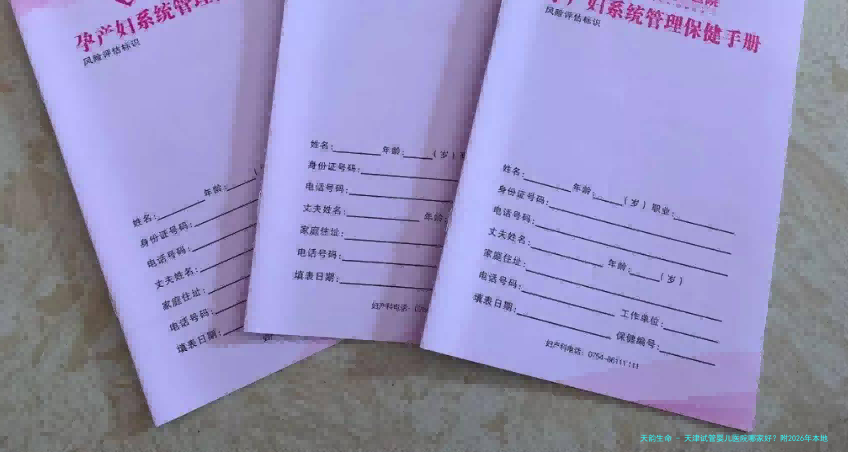 孕产妇系统管理
风险评估标识
姓名:
年龄:
身份证号码:
电话号码:
丈夫姓名:
家庭住址:
电话号码:
填表日期:
姓名:
年龄:
(岁)
身份证号码:
电话号码:
丈夫姓名:
年龄:
家庭住址:
电话号码:
填表日期:
妇产科电话:
院
孕产妇系统管理保健手册
风险评估标识
姓名: 年龄: (岁) 职业:
身份证号码:
电话号码:
丈夫姓名: 年龄: (岁)
家庭住址:
电话号码: 工作单位:
填表日期: 保健编号:
妇产科电话: 0754-86111111
天韵生命 - 天津试管婴儿医院哪家好?附2026年本地